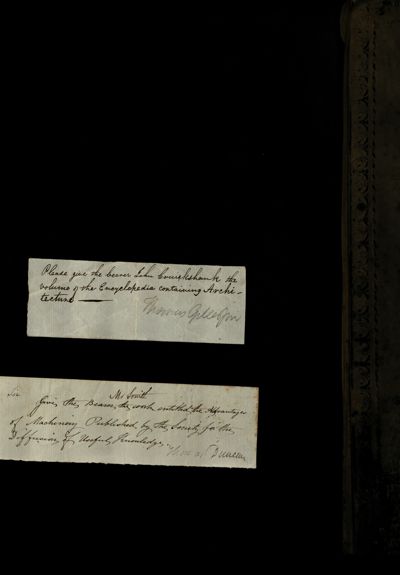 Please give the bearer John Cruikshank the
volume of the Encyclopedia containing Archi-
tecture
Thomas Gillespie
Mr Smith
Sir
Give the Bearer the work entitled the Advantages
of Machinery Published by the Society for the
Diffusing of Useful Knowledge
Thomas Duncan